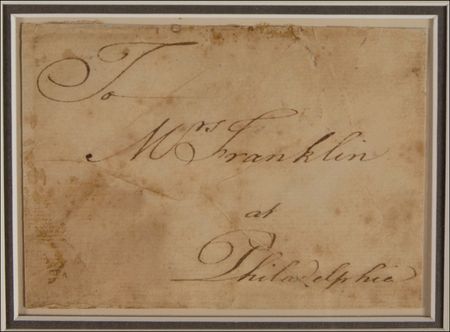 To
Mrs Franklin
at
Philadelphia